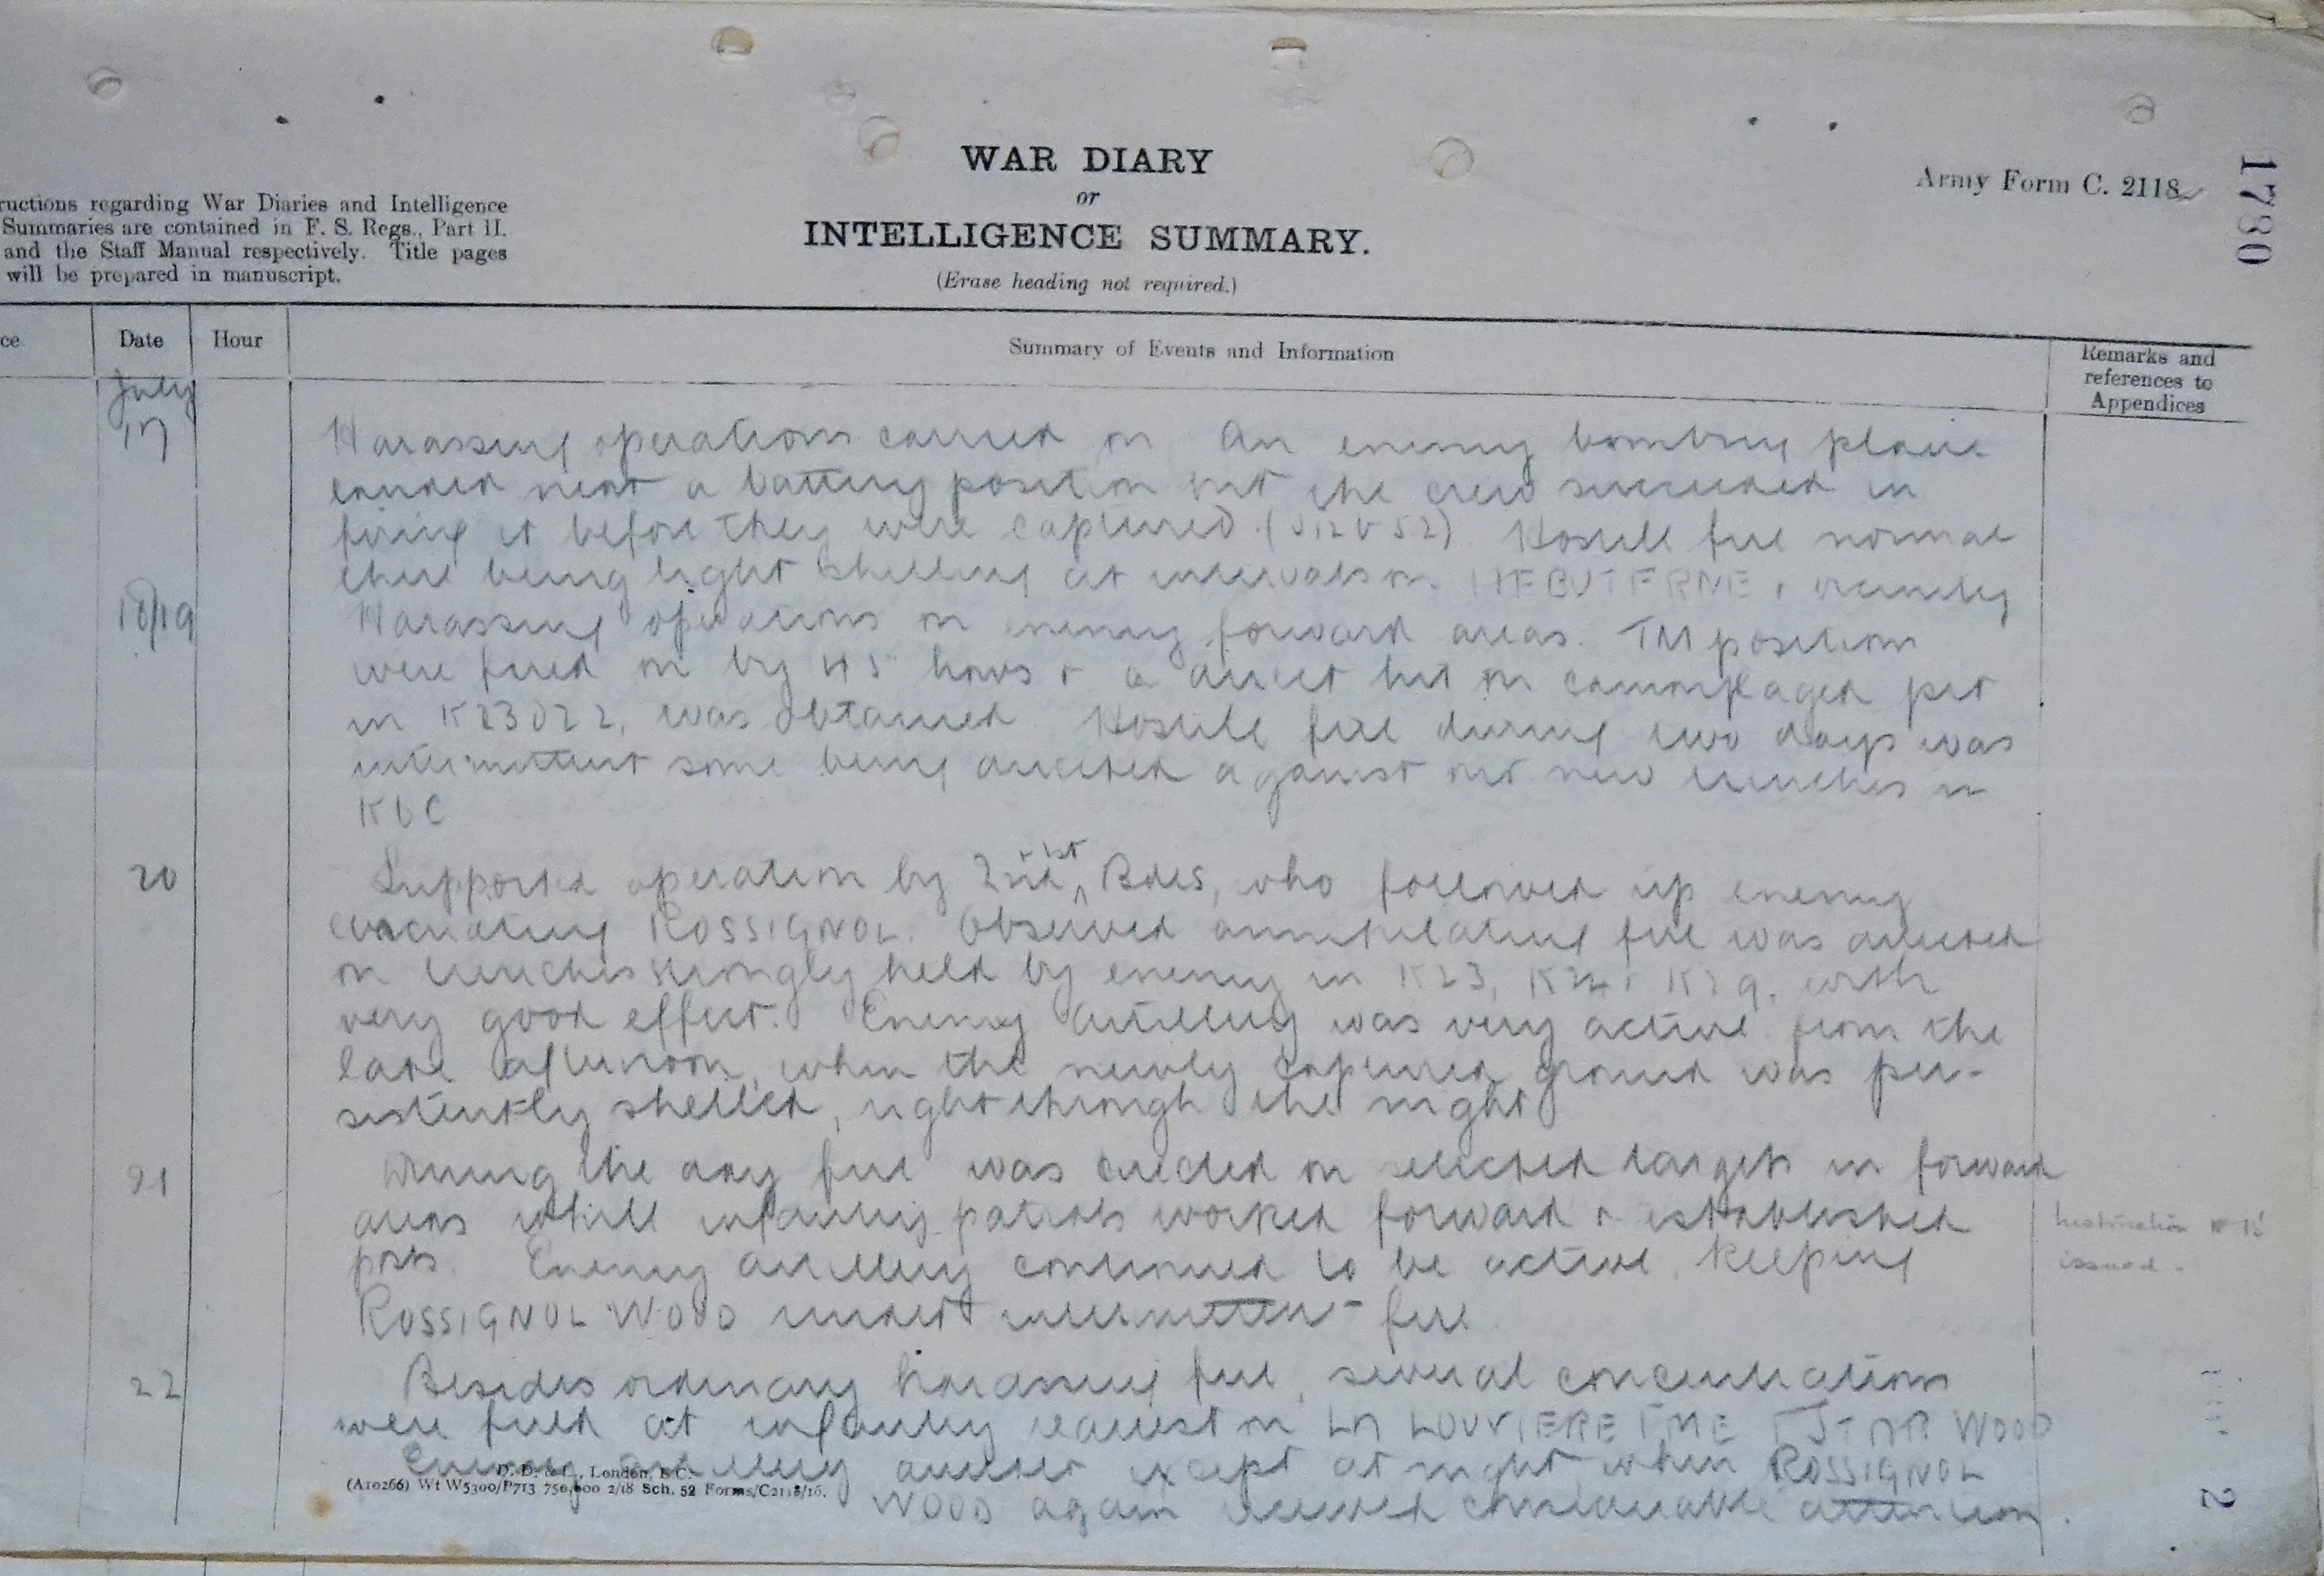 WAR DIARY
or
INTELLIGENCE SUMMARY.
(Erase heading not required.)
Army Form C. 2118
1780
ructions regarding War Diaries and Intelligence
Summaries are contained in F. S. Regs., Part II.
and the Staff Manual respectively. Title pages
will be prepared in manuscript.
ce
Date
Hour
Summary of Events and Information
Remarks and
references to
Appendices
July
17
Harassing operations carried on An enemy bombing plane
landed near a battery position but the crew succeeded in
firing it before they were captured. Hostile fire normal
there being light shelling at intervals on HEBUTERNE & vicinity
18/19
Harassing operations on enemy forward areas. TM position
were fired on by 45 hows & a direct hit on camouflaged pit
in K23 was obtained Hostile fire during two days was
intermittent some being directed against our new trenches in
K6C
20
Supported operation by 2nd & 1st Bdes, who followed up enemy
evacuating ROSSIGNOL. Observed annihilating fire was directed
on trenches strongly held by enemy in K23, K24 & K29, with
very good effect. Enemy artillery was very active from the
late afternoon, when the newly captured ground was per-
sistently shelled, right through the night
21
During the day fire was directed on selected targets in forward
areas while infantry patrols worked forward & established
posts. Enemy artillery continued to be active, keeping
ROSSIGNOL WOOD under intermittent fire.
issued.
22
Besides ordinary harassing fire, several concentrations
were fired at infantry request on LA LOUVIERE FME & STAR WOOD
Enemy artillery quieter except at night when ROSSIGNOL
WOOD again received considerable attention.
D. D. & L., London, E.C.
(A10266) Wt W5300/P713 750,000 2/18 Sch. 52 Forms/C2118/16.
2